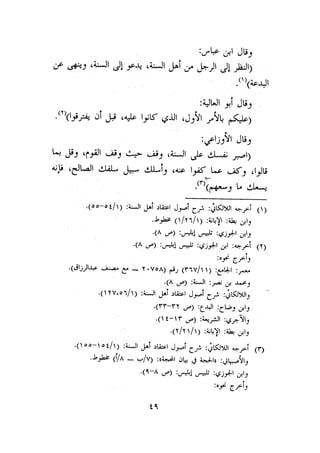 وقال ابن عباس:
(النظر إلى الرجل من أهل السنة، يدعو إلى السنة، وينهى عن
البدعة)(١).
وقال أبو العالية:
(عليكم بالأمر الأول، الذي كانوا عليه، قبل أن يفترقوا)(٢).
وقال الأوزاعي:
(اصبر نفسك على السنة، وقف حيث وقف القوم، وقل بما
قالوا، وكف عما كفوا عنه، وأسلك سبيل سلفك الصالح، فإنه
يسعك ما وسعهم)(٣).
(١) أخرجه اللالكائي: شرح أصول اعتقاد أهل السنة: (٥٤/١-٥٥).
وابن بطة: الإبانة: (١/٢٦/١) مخطوط.
وابن الجوزي: تلبيس إبليس: (ص ٨).
(٢) أخرجه: ابن الجوزي: تلبيس إبليس: (ص ٨).
وأخرج نحوه:
معمر: الجامع: (٣٦٧/١١) رقم (٢٠٧٥٨ ــ مع مصنف عبدالرزاق).
ومحمد بن نصر: السنة: (ص ٨).
واللالكائي: شرح أصول اعتقاد أهل السنة: (٥٦/١، ١٢٧).
وابن وضاح: البدع: (ص ٣٢-٣٣).
والآجري: الشريعة: (ص ١٣-١٤).
وابن بطة: الإبانة: (٢/٢١/١).
(٣) أخرجه اللالكائي: شرح أصول اعتقاد أهل السنة: (١٥٤/١-١٥٥).
والأصبهاني: «الحجة في بيان المحجة»: (٧/ب ــ ٨/أ) مخطوط.
وابن الجوزي: تلبيس إبليس: (ص ٨-٩).
وأخرج نحوه:
٤٩